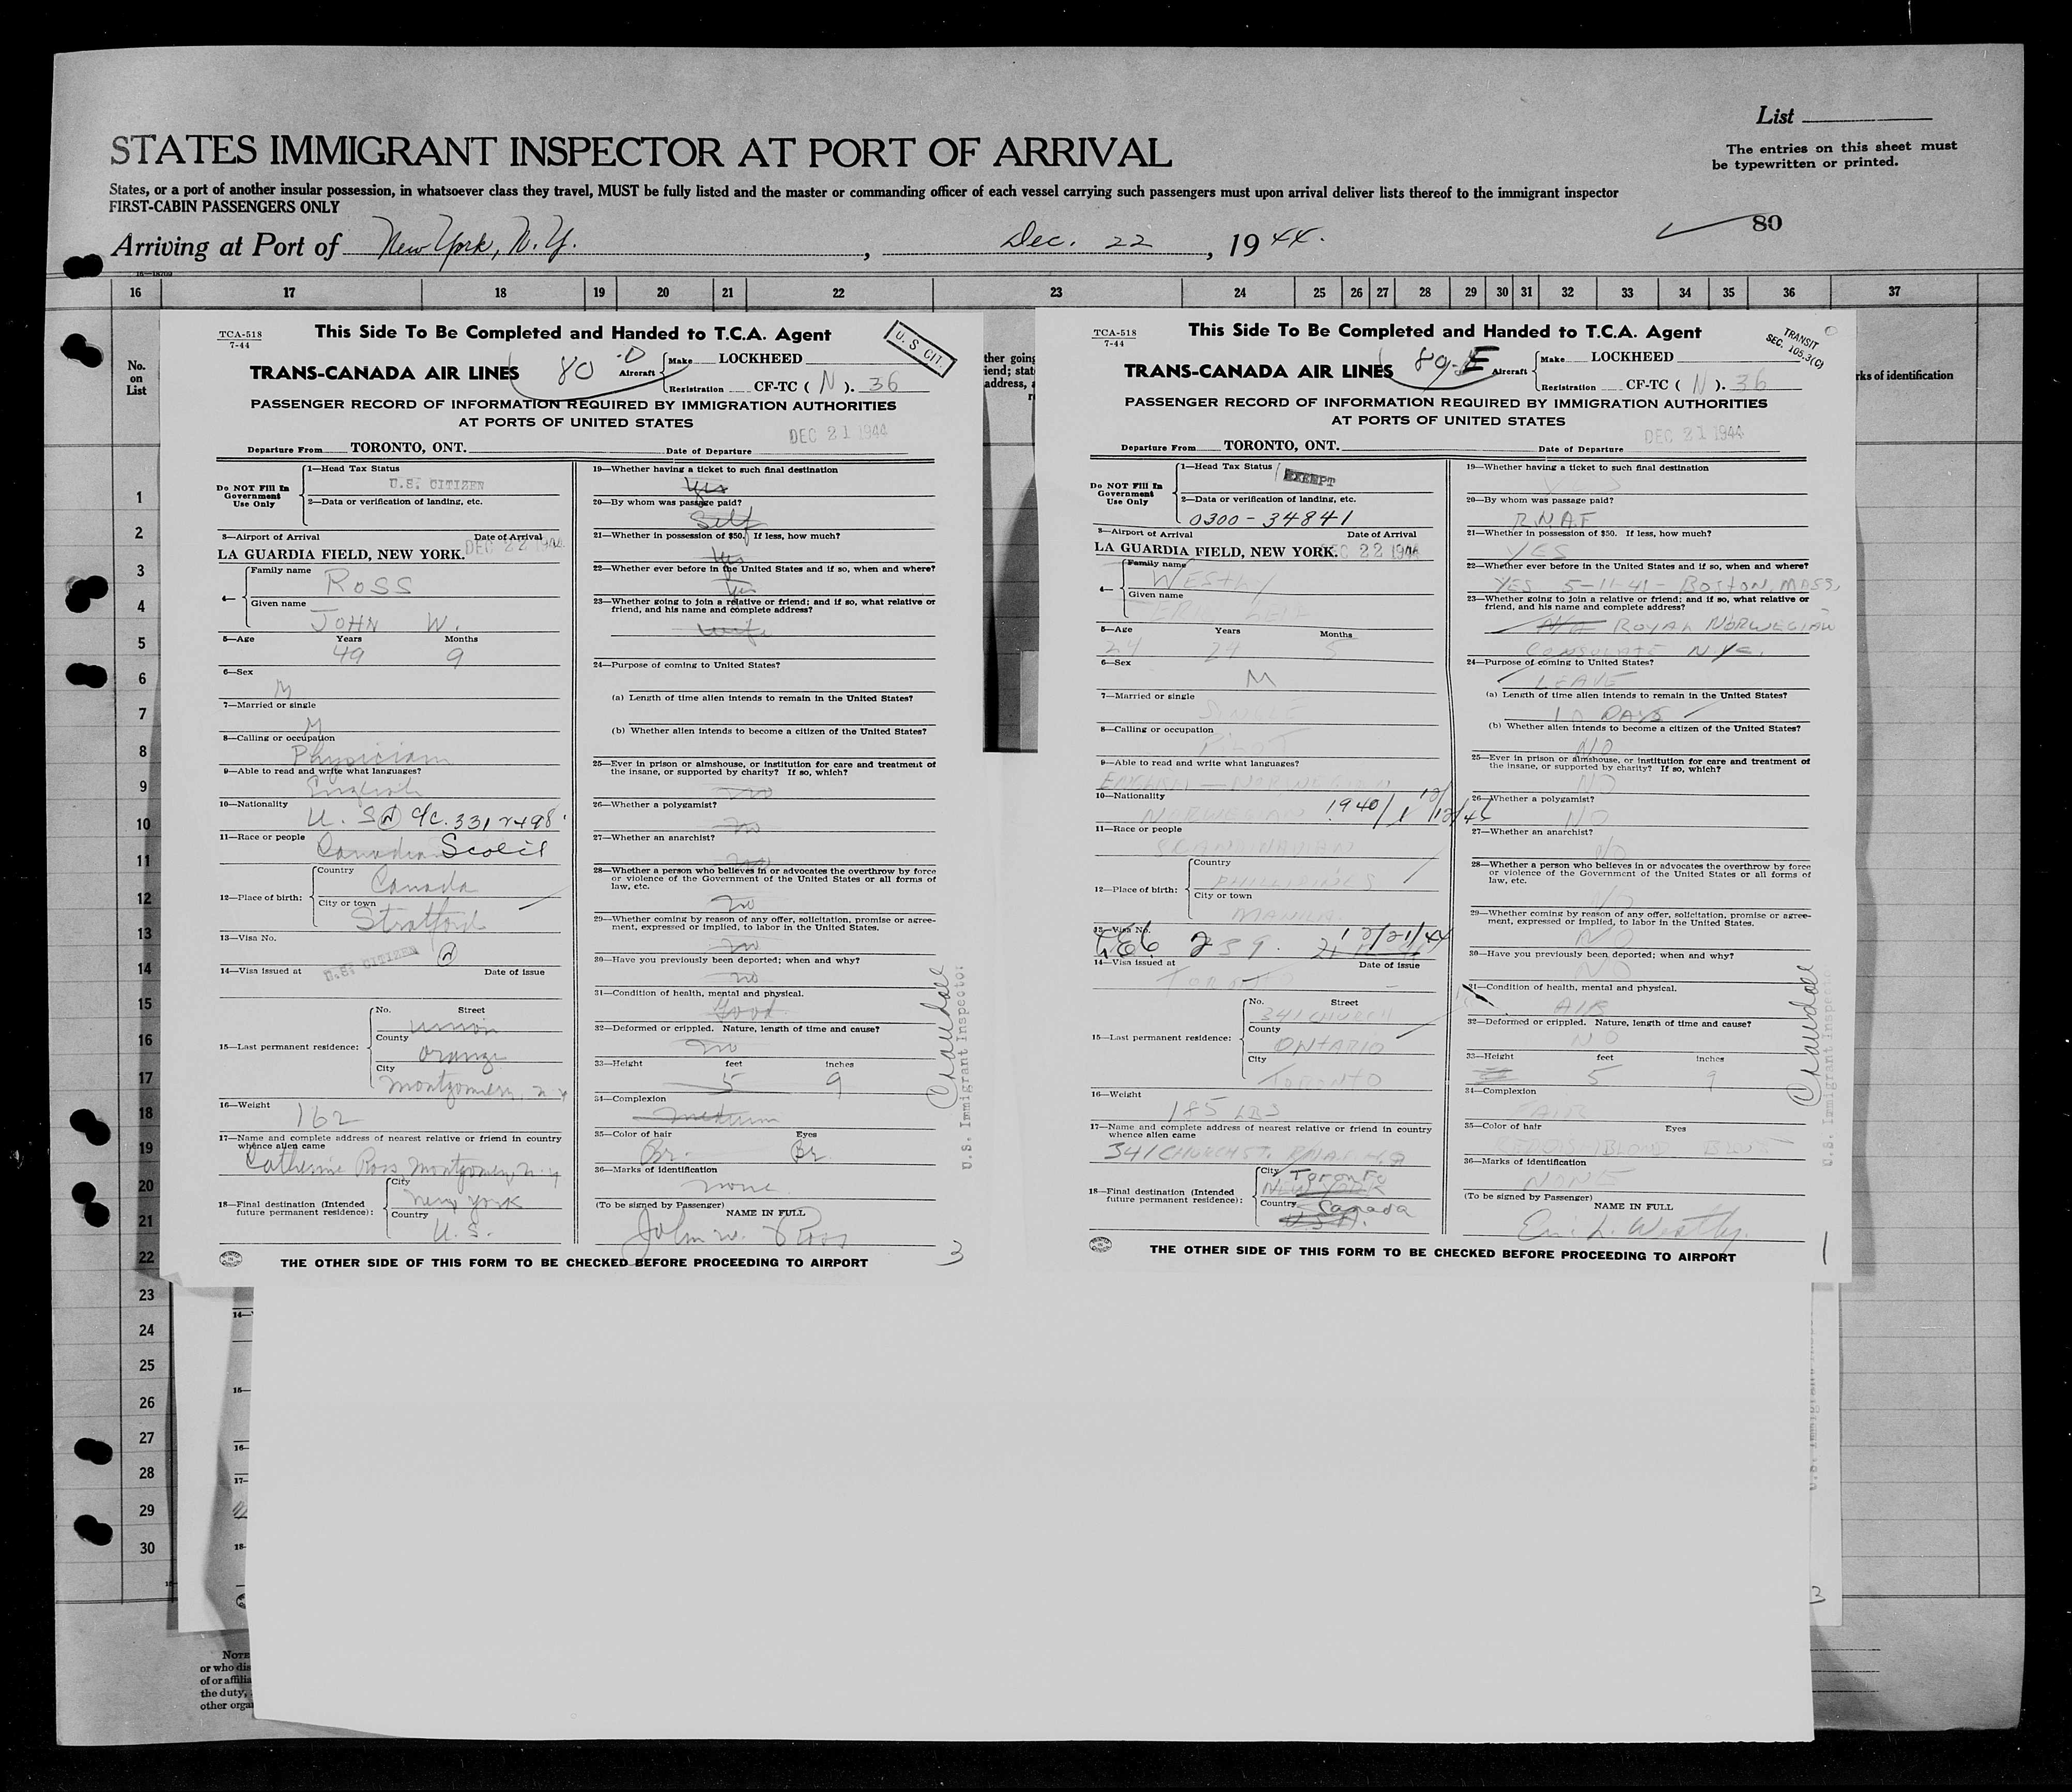 List
The entries on this sheet must
be typewritten or printed.
STATES IMMIGRANT INSPECTOR AT PORT OF ARRIVAL
States, or a port of another insular possession, in whatsoever class they travel, MUST be fully listed and the master or commanding officer of each vessel carrying such passengers must upon arrival deliver lists thereof to the immigrant inspector
FIRST-CABIN PASSENGERS ONLY
80
Arriving at Port of New York, N.Y., Dec. 22, 1944.
16 17 18 19 20 21 22 23 24 25 26 27 28 29 30 31 32 33 34 35 36 37
No.
on
List
1
2
3
4
5
6
7
8
9
10
11
12
13
14
15
16
17
18
19
20
21
22
23
24
25
26
27
28
29
30
TCA-518
7-44
This Side To Be Completed and Handed to T.C.A. Agent
U. S. CIT.
TRANS-CANADA AIR LINES
80-D
Aircraft
Make LOCKHEED
Registration CF-TC ( N ). 36
PASSENGER RECORD OF INFORMATION REQUIRED BY IMMIGRATION AUTHORITIES
AT PORTS OF UNITED STATES
DEC 21 1944
Departure From TORONTO, ONT. Date of Departure
Do NOT Fill In
Government
Use Only
1—Head Tax Status
U.S. CITIZEN
2—Data or verification of landing, etc.
3—Airport of Arrival Date of Arrival
LA GUARDIA FIELD, NEW YORK. DEC 22 1944
4—
Family name
ROSS
Given name
JOHN W.
5—Age Years Months
49 9
6—Sex
M
7—Married or single
M
8—Calling or occupation
Physician
9—Able to read and write what languages?
English
10—Nationality
U. S. C/C. 3312498
11—Race or people
Canadian Scotch
12—Place of birth:
Country
Canada
City or town
Stratford
13—Visa No.
U.S. CITIZEN
14—Visa issued at Date of issue
15—Last permanent residence:
No. Street
Union
County
Orange
City
Montgomery, N.Y.
16—Weight
162
17—Name and complete address of nearest relative or friend in country
whence alien came
Catherine Ross, Montgomery, N.Y.
18—Final destination (Intended
future permanent residence):
City
New York
Country
U. S.
19—Whether having a ticket to such final destination
Yes
20—By whom was passage paid?
Self
21—Whether in possession of $50. If less, how much?
Yes
22—Whether ever before in the United States and if so, when and where?
Yes
23—Whether going to join a relative or friend; and if so, what relative or
friend, and his name and complete address?
Wife
24—Purpose of coming to United States?
(a) Length of time alien intends to remain in the United States?
(b) Whether alien intends to become a citizen of the United States?
25—Ever in prison or almshouse, or institution for care and treatment of
the insane, or supported by charity? If so, which?
no
26—Whether a polygamist?
no
27—Whether an anarchist?
no
28—Whether a person who believes in or advocates the overthrow by force
or violence of the Government of the United States or all forms of
law, etc.
no
29—Whether coming by reason of any offer, solicitation, promise or agree-
ment, expressed or implied, to labor in the United States.
no
30—Have you previously been deported; when and why?
no
31—Condition of health, mental and physical.
Good
32—Deformed or crippled. Nature, length of time and cause?
no
33—Height feet inches
5 9
34—Complexion
medium
35—Color of hair Eyes
Br. Br
36—Marks of identification
none
(To be signed by Passenger) NAME IN FULL
John W. Ross
THE OTHER SIDE OF THIS FORM TO BE CHECKED BEFORE PROCEEDING TO AIRPORT
3
U.S. Immigrant Inspector
TCA-518
7-44
This Side To Be Completed and Handed to T.C.A. Agent
TRANSIT
SEC. 105.3(C)
TRANS-CANADA AIR LINES
80-E
Aircraft
Make LOCKHEED
Registration CF-TC ( N ). 36
PASSENGER RECORD OF INFORMATION REQUIRED BY IMMIGRATION AUTHORITIES
AT PORTS OF UNITED STATES
DEC 21 1944
Departure From TORONTO, ONT. Date of Departure
Do NOT Fill In
Government
Use Only
1—Head Tax Status
EXEMPT
2—Data or verification of landing, etc.
0300-34841
3—Airport of Arrival Date of Arrival
LA GUARDIA FIELD, NEW YORK. DEC 22 1944
4—
Family name
Given name
5—Age Years Months
24 24 5
6—Sex
M
7—Married or single
SINGLE
8—Calling or occupation
PILOT
9—Able to read and write what languages?
ENGLISH — NORWEGIAN
10—Nationality
NORWEGIAN
11—Race or people
SCANDINAVIAN
12—Place of birth:
Country
PHILLIPINES
City or town
MANILA
13—Visa No.
239. 12/21/44
14—Visa issued at Date of issue
TORONTO
15—Last permanent residence:
No. Street
341 CHURCH
County
ONTARIO
City
TORONTO
16—Weight
185 LBS
17—Name and complete address of nearest relative or friend in country
whence alien came
341 CHURCH ST. RNAF HQ
18—Final destination (Intended
future permanent residence):
City
Toronto
NEW YORK
Country
Canada
U.S.A.
19—Whether having a ticket to such final destination
20—By whom was passage paid?
R.N.A.F
21—Whether in possession of $50. If less, how much?
YES
22—Whether ever before in the United States and if so, when and where?
YES 5-11-41 - BOSTON, MASS,
23—Whether going to join a relative or friend; and if so, what relative or
friend, and his name and complete address?
ROYAL NORWEGIAN
CONSULATE N.Y.C.
24—Purpose of coming to United States?
LEAVE
(a) Length of time alien intends to remain in the United States?
10 DAYS
(b) Whether alien intends to become a citizen of the United States?
NO
25—Ever in prison or almshouse, or institution for care and treatment of
the insane, or supported by charity? If so, which?
NO
26—Whether a polygamist?
NO
27—Whether an anarchist?
NO
28—Whether a person who believes in or advocates the overthrow by force
or violence of the Government of the United States or all forms of
law, etc.
NO
29—Whether coming by reason of any offer, solicitation, promise or agree-
ment, expressed or implied, to labor in the United States.
NO
30—Have you previously been deported; when and why?
NO
31—Condition of health, mental and physical.
32—Deformed or crippled. Nature, length of time and cause?
NO
33—Height feet inches
5 9
34—Complexion
FAIR
35—Color of hair Eyes
BLOND BLUE
36—Marks of identification
NONE
(To be signed by Passenger) NAME IN FULL
THE OTHER SIDE OF THIS FORM TO BE CHECKED BEFORE PROCEEDING TO AIRPORT
1
U.S. Immigrant Inspector
rks of identification
NOTE
or who dis
of or affilia
the duty,
other orga